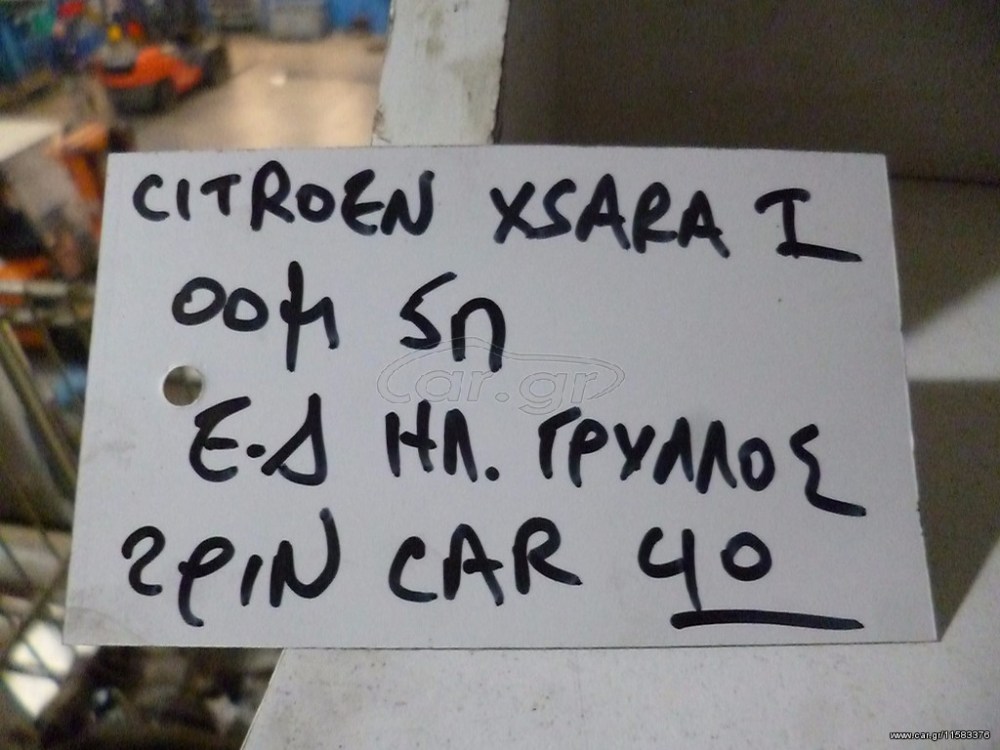 CITROEN XSARA I
00μ 5π
Ε.Δ ΗΛ. ΓΡΥΛΛΟΣ
2PIN CAR 40
car.gr
www.car.gr/11583376